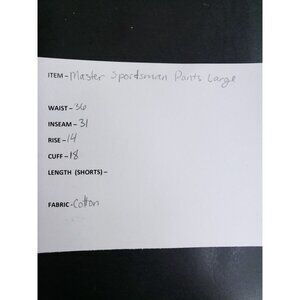 ITEM - Master Spordsman Pants Large
WAIST - 36
INSEAM - 31
RISE - 14
CUFF - 18
LENGTH (SHORTS) -
FABRIC - Cotton